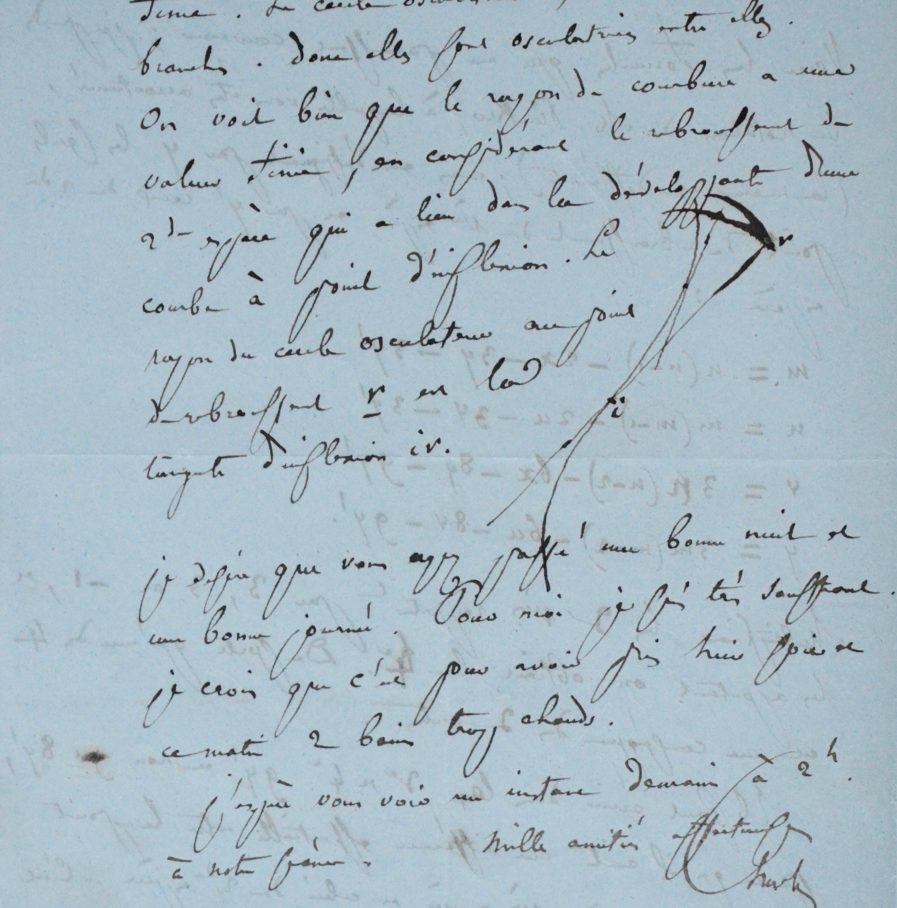 finie. Le cercle
branches. donc elles sont osculatrices entre elles.
On voit bien que le rayon de courbure a une
valeur finie, en considérant le rebroussement de
2de espèce qui a lieu dans la développante d'une
courbe à point d'inflexion. Le
r
rayon du cercle osculateur au point
de rebroussement r est la
i
tangente d'inflexion ir.
je désire que vous ayez passé une bonne nuit et
une bonne journée. Pour moi je suis très souffrant.
je crois que c'est pour avoir pris hier soir et
ce matin 2 bains trop chauds.
j'espère vous voir un instant demain à 2h.
mille amitiés affectueuses
à notre